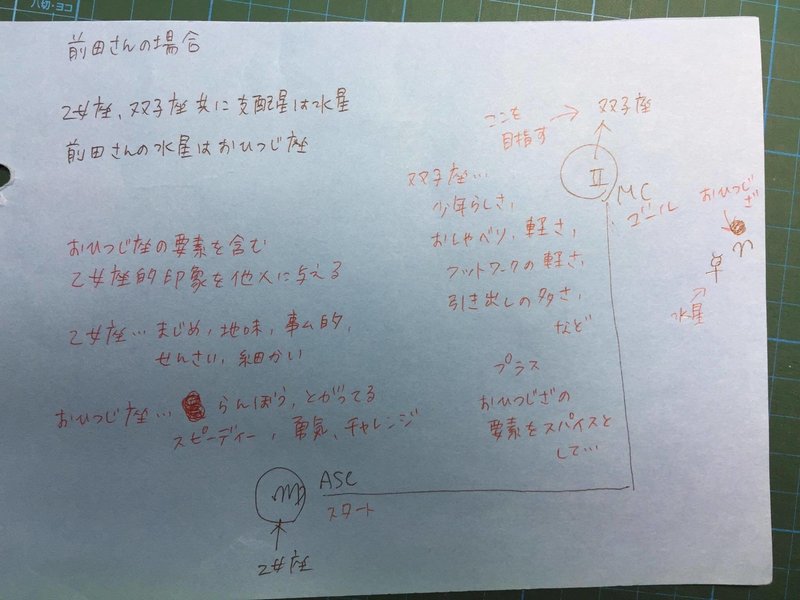 八切・ヨコ
前田さんの場合
乙女座、双子座 共に支配星は水星
前田さんの水星はおひつじ座
おひつじ座の要素を含む
乙女座的印象を他人に与える
乙女座… まじめ、地味、事ム的、
せんさい、細かい
おひつじ座… らんぼう、とがってる
スピーディー、勇気、チャレンジ
♍ ASC
スタート
乙女座
ここを
目指す
双子座
Ⅱ
MC
ゴール
双子座…
少年らしさ、
おしゃべり、軽さ、
フットワークの軽さ、
引き出しの多さ、
など
プラス
おひつじざの
要素をスパイスと
して…
おひつじ
ざ
水星